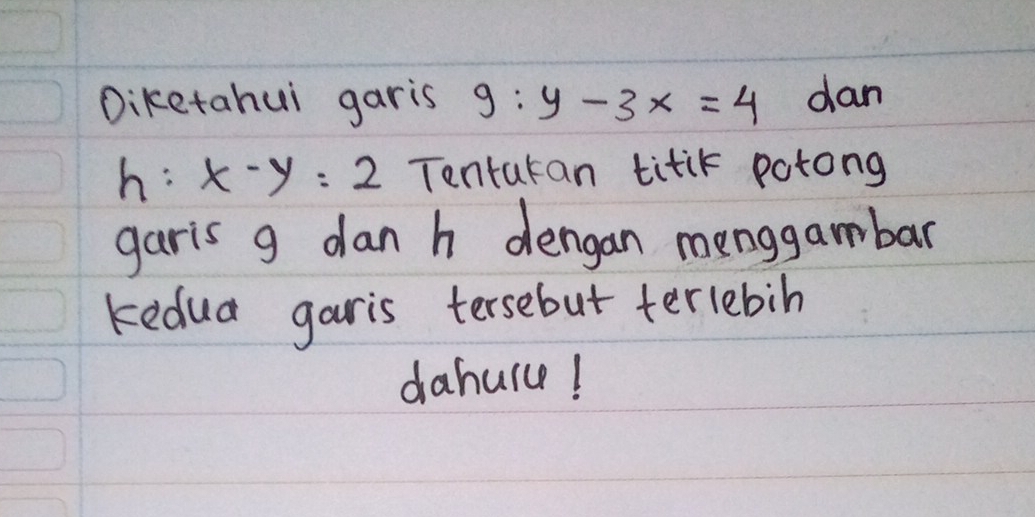 Diketahui garis g : y - 3x = 4 dan
h : x - y = 2 Tentukan titik potong
garis g dan h dengan menggambar
kedua garis tersebut terlebih
dahulu !